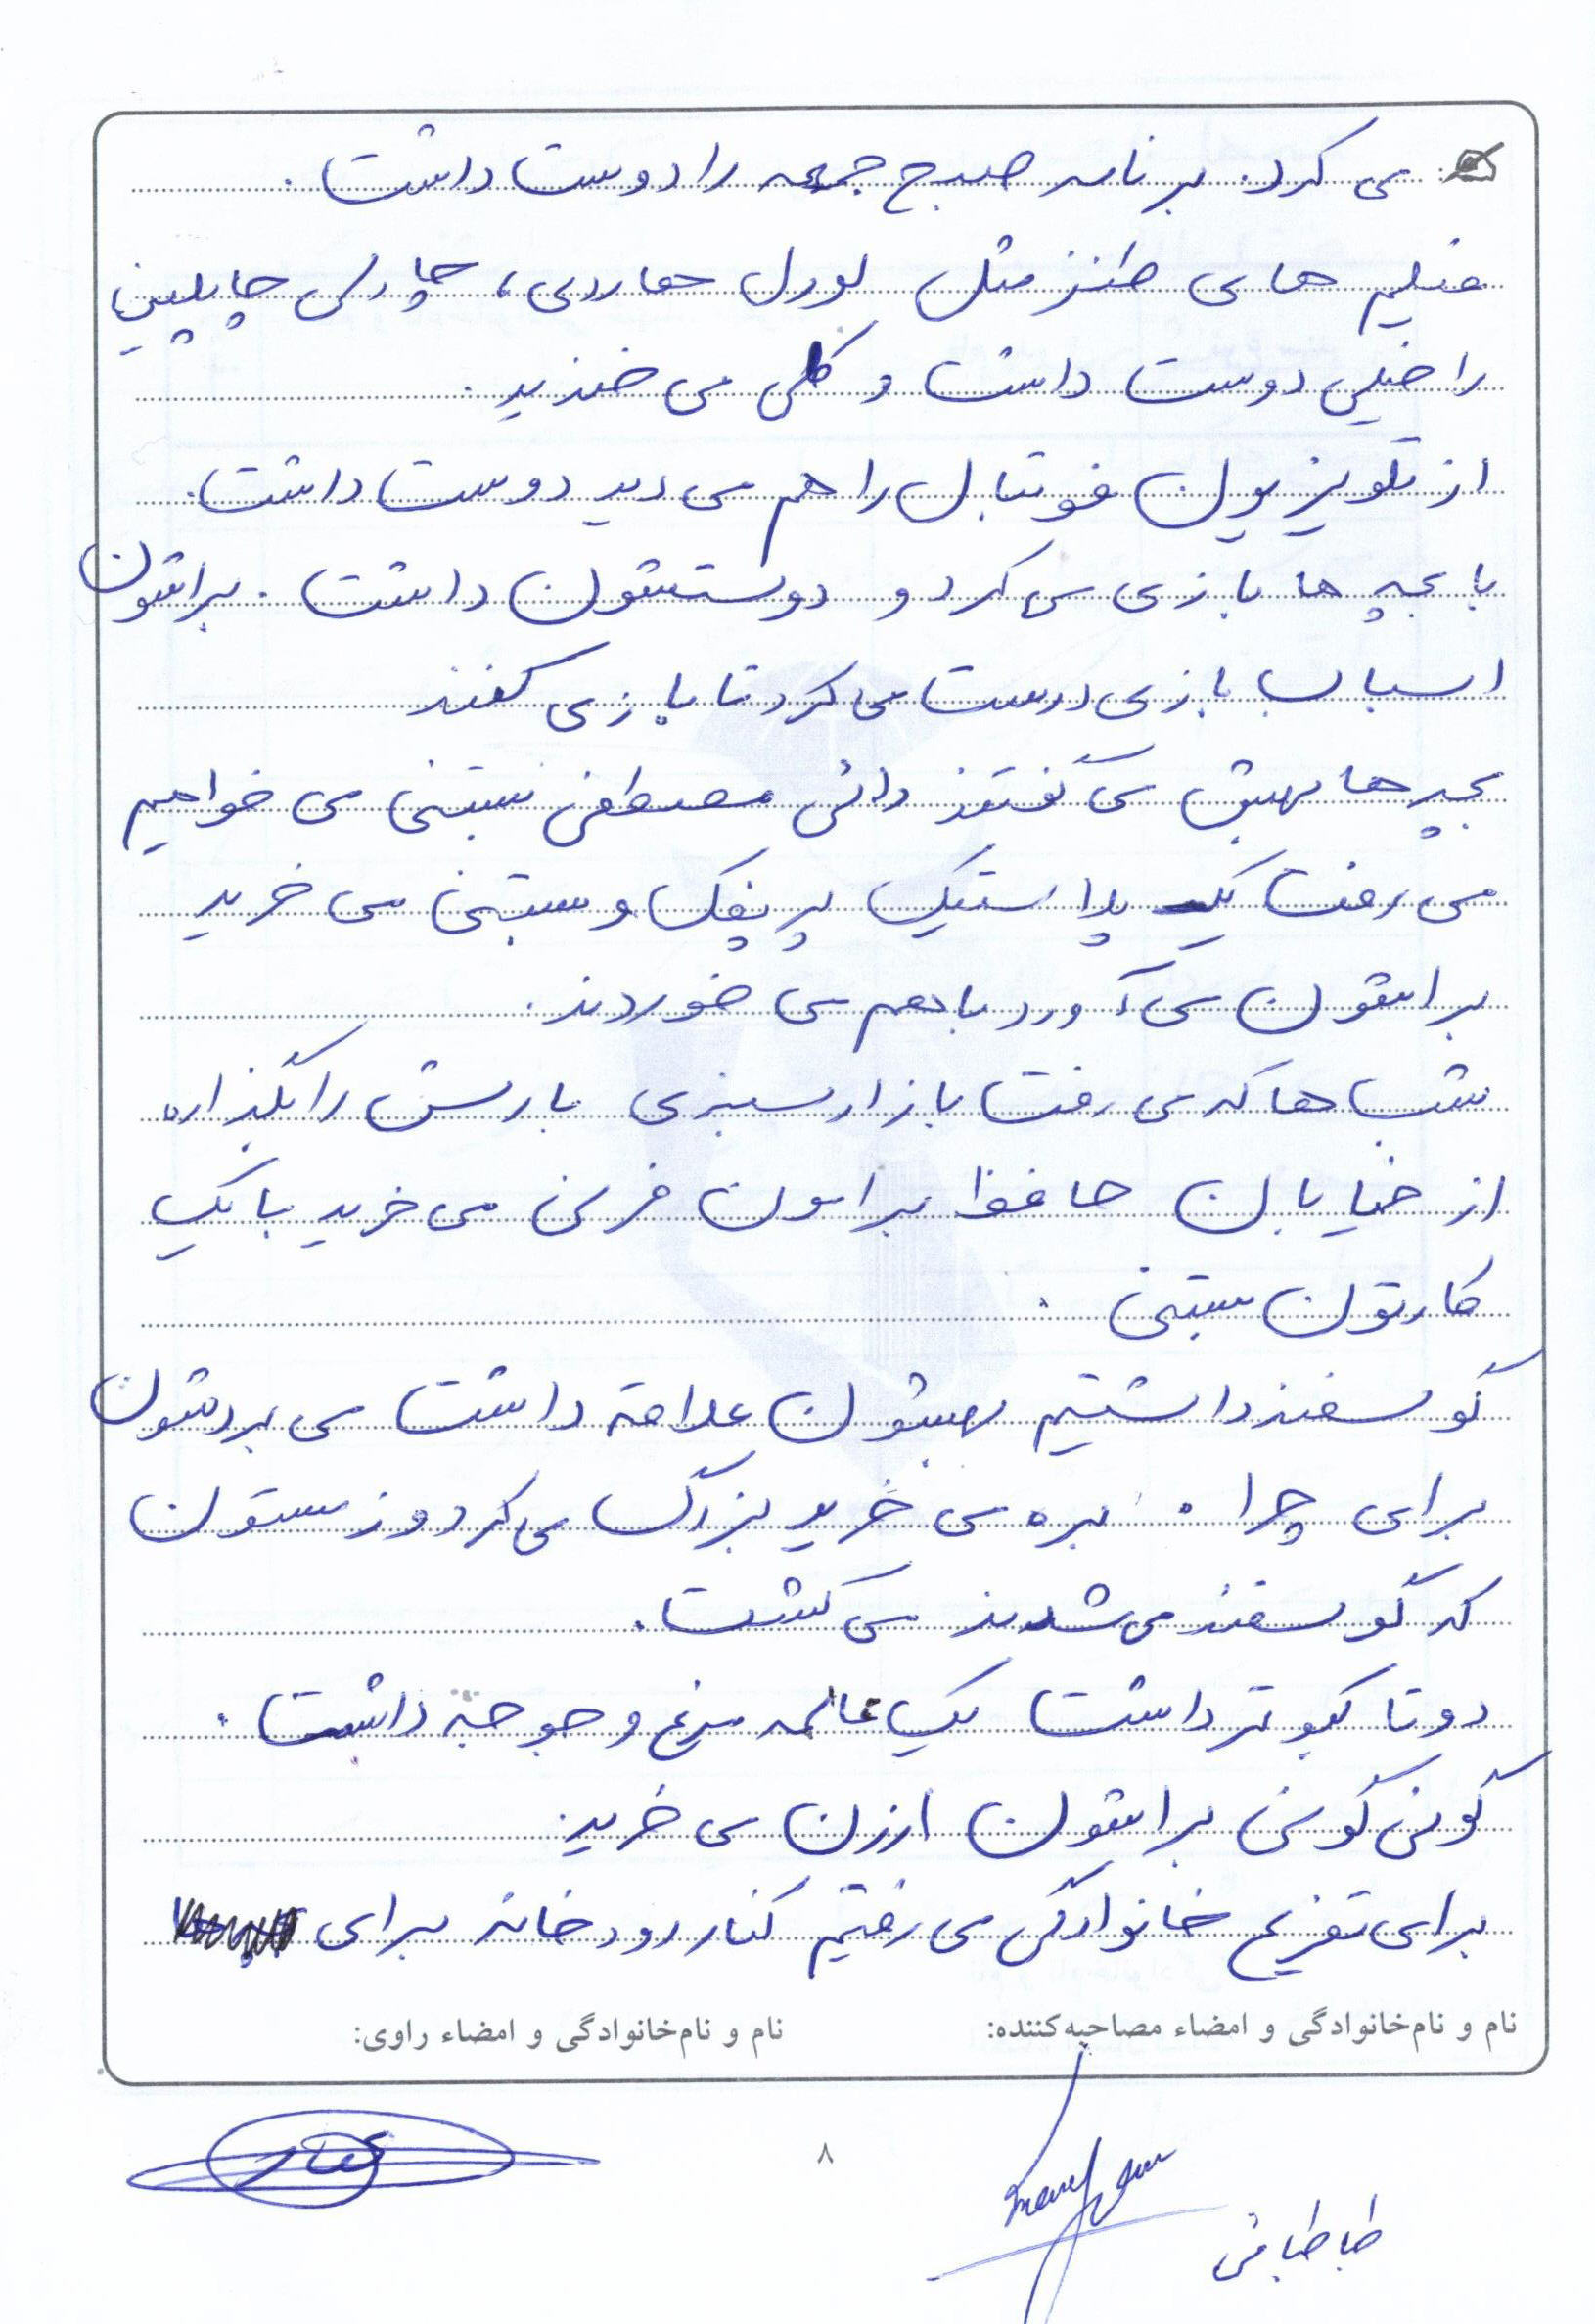 می کرد. برنامه صبح جمعه را دوست داشت.
فیلم های طنز مثل لورل هاردی، چارلی چاپلین
را خیلی دوست داشت و کلی می خندید.
از تلویزیون فوتبال را هم می دید دوست داشت.
با بچه ها بازی می کرد و دوستشون داشت. براشون
اسباب بازی درست می کرد تا بازی کنند
بچه ها بهش می گفتند دائی مصطفی بستنی می خواهیم
می رفت یک پلاستیک پر پفک و بستنی می خرید
براشون می آورد با هم می خوردند.
شب ها که می رفت بازار سبزی بارش را بگذاره
از خیابان حافظ برامون فرنی می خرید با یک
کارتون بستنی.
گوسفند داشتیم بهشون علاقه داشت می بردشون
برای چرا. بره می خرید بزرگ می کرد و زمستون
که گوسفند می شدند می کشت.
دو تا کبوتر داشت یک عالمه مرغ و جوجه داشت.
گونی گونی براشون ارزن می خرید.
برای تفریح خانوادگی می رفتیم کنار رودخانه برای
نام و نام‌خانوادگی و امضاء مصاحبه‌کننده: نام و نام‌خانوادگی و امضاء راوی:
۸
طباطبائی